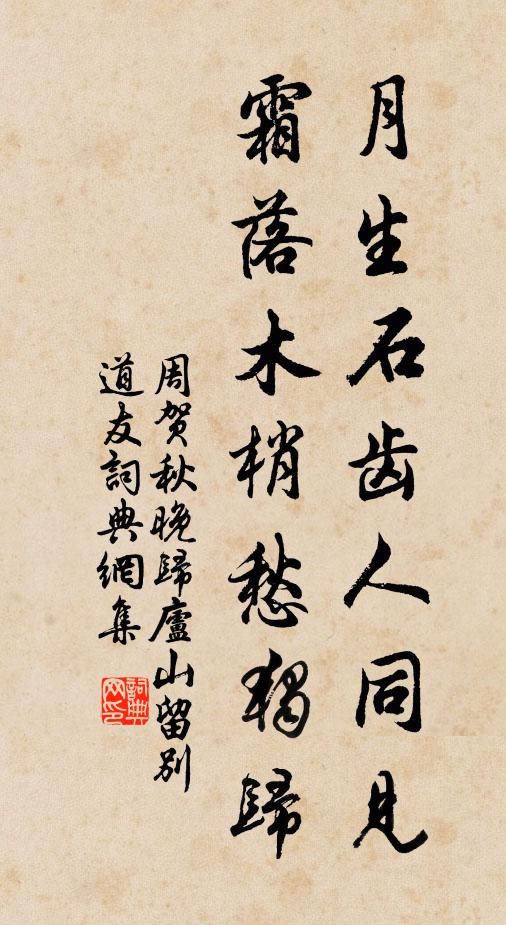 月生石齿人同见
霜落木梢愁独歸
周贺秋晚歸廬山留别
道友詞典網集
詞典网印